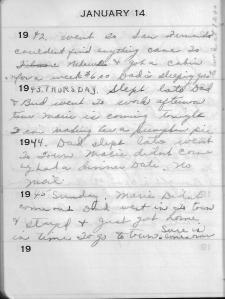 JANUARY 14
1942 went to San Fernando
couldent find anything came to
& got a cabin
for a week $6.00 Dad is sleeping yes
1943. THURSDAY. Slept late Dad
& Bud went to work afternoon
town Marie is coming tonight
I am making her a pumpkin pie
1944. Dad slept late went
to town Marie didnt come
she had a dinner date. No
mail
1945 Sunday. Marie Didnt
come and Dad went in to town
& stayed & just got home
in time to go to town.
19